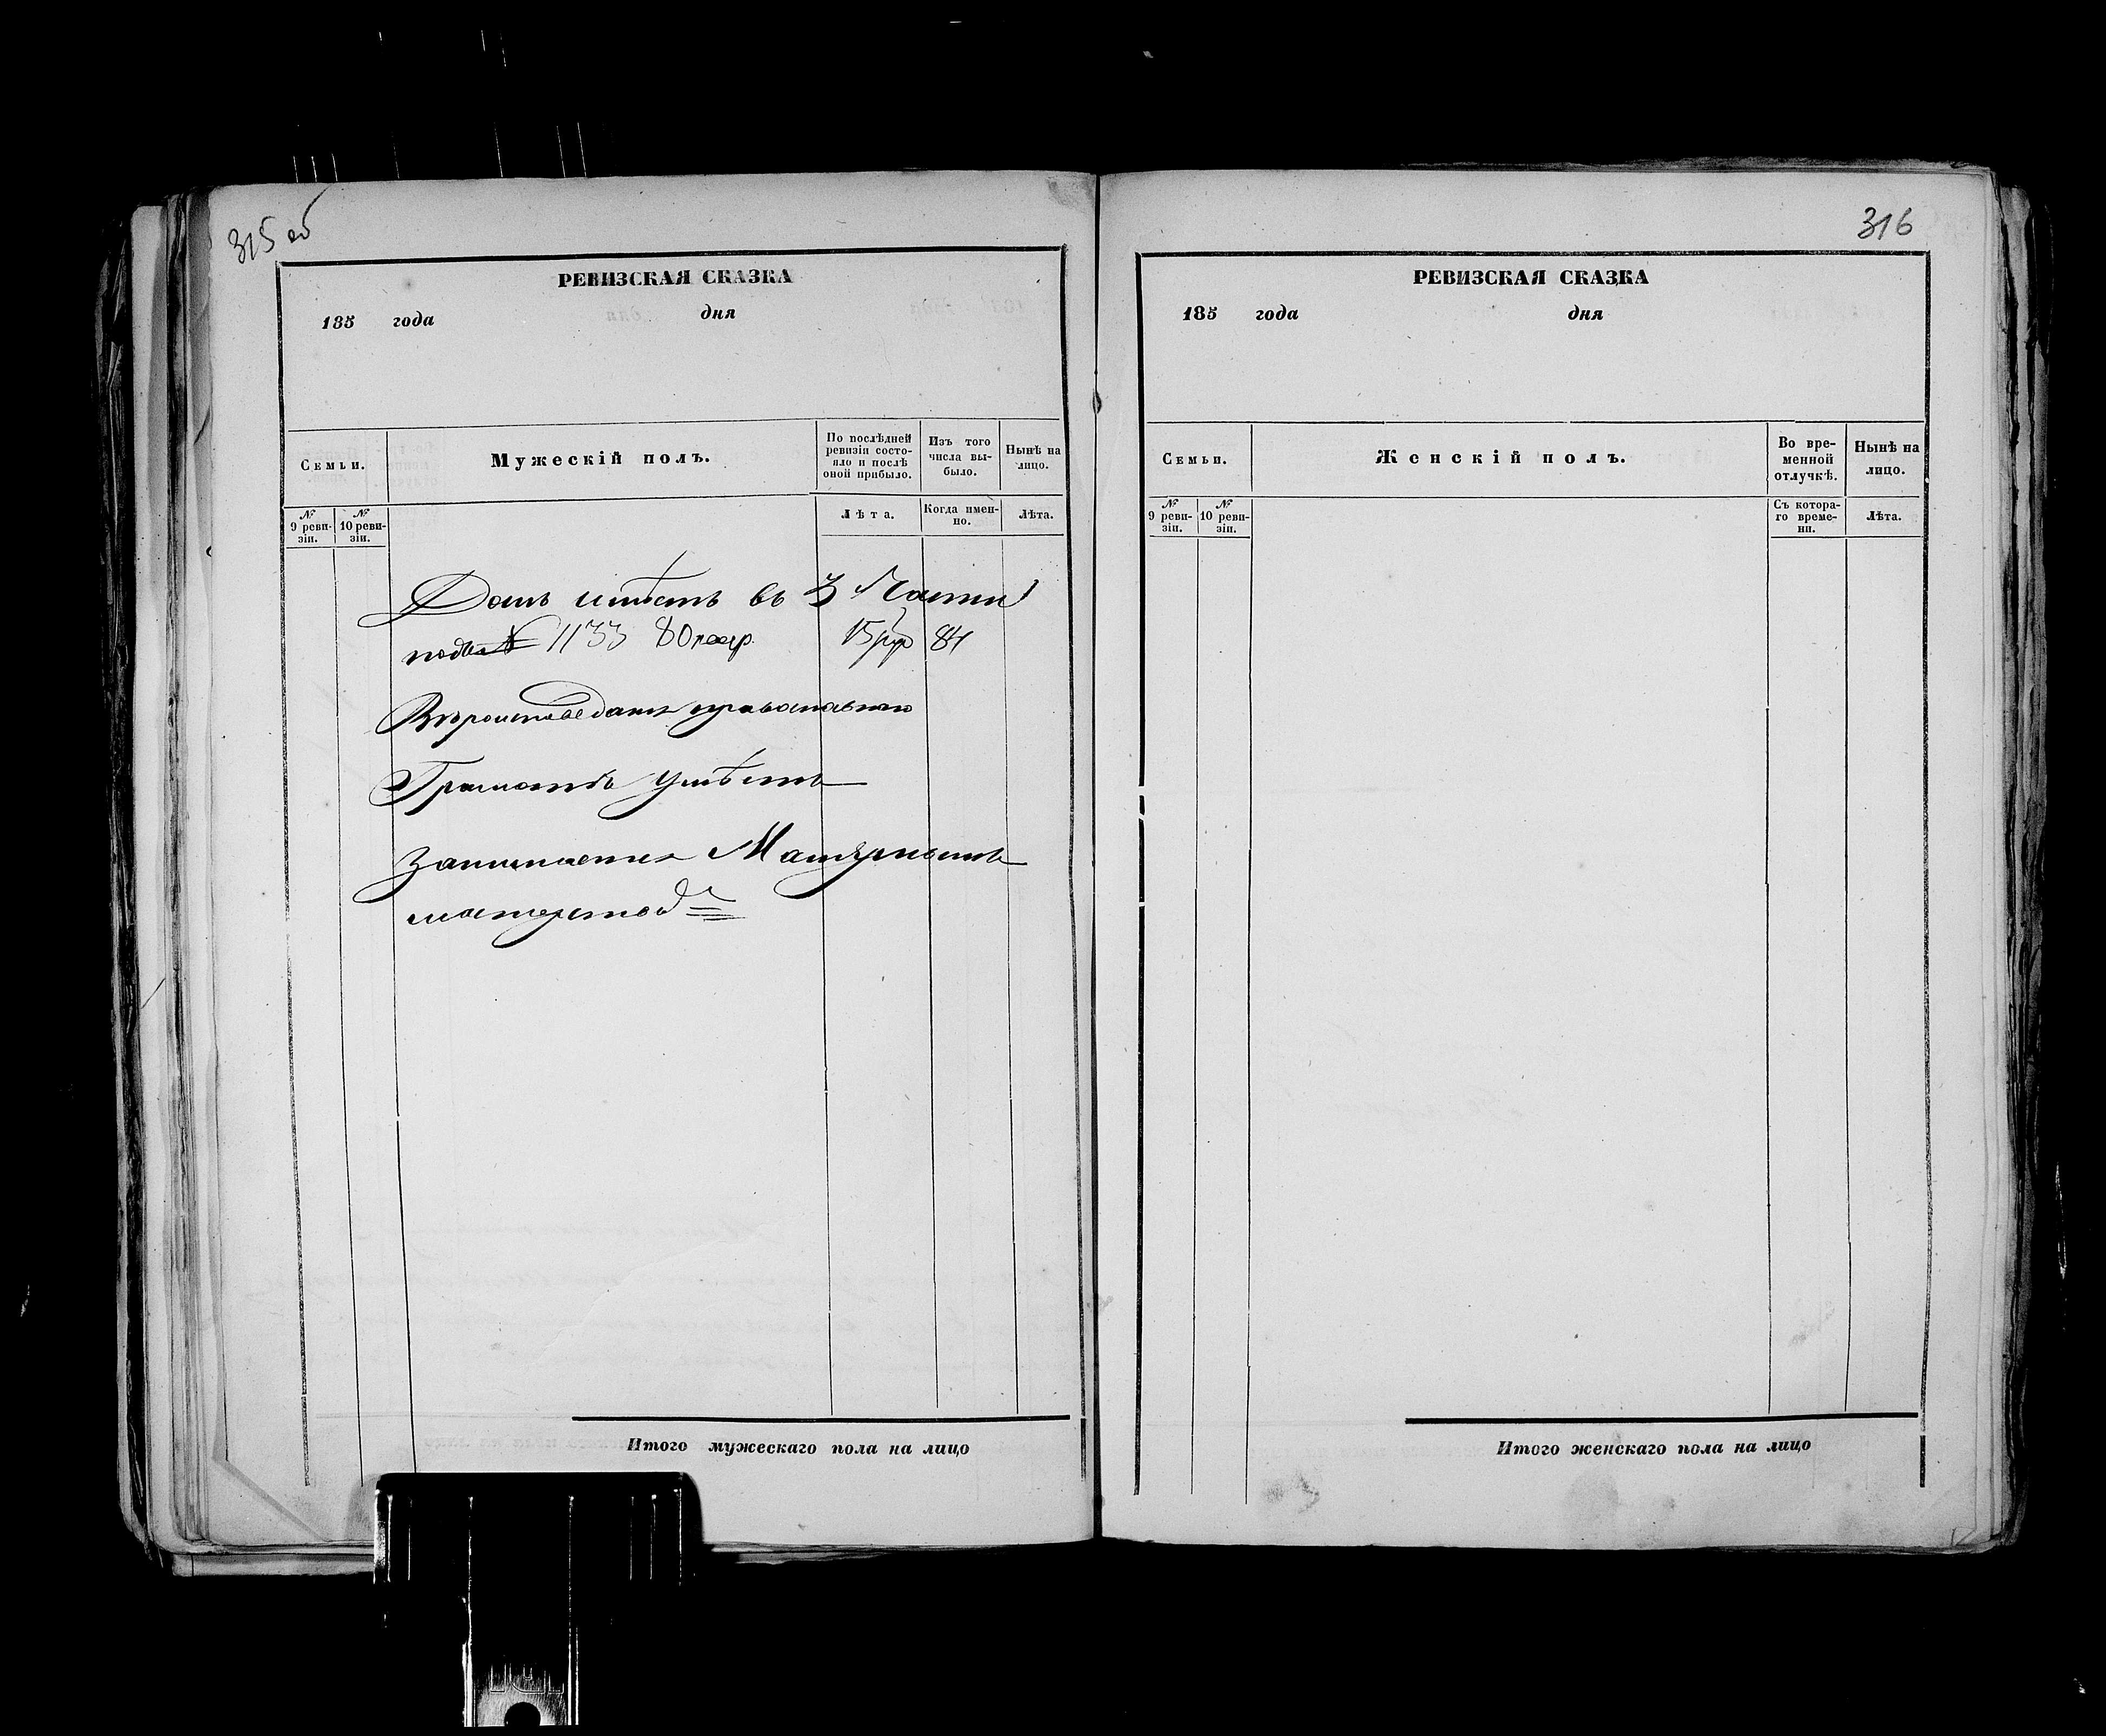 315 об
РЕВИЗСКАЯ СКАЗКА
185 года дня
Семьи.
Мужескій полъ.
По послѣдней ревизіи состояло и послѣ оной прибыло.
Изъ того числа выбыло.
Нынѣ на лицо.
№ 9 ревизіи.
№ 10 ревизіи.
Лѣта.
Когда именно.
Лѣта.
Домъ имѣетъ въ 3 Части
подъ № 1133 80 15 84
Вѣроисповеданія православнаго
Грамотѣ умѣетъ
Занимается
мастерствомъ
Итого мужескаго пола на лицо
316
РЕВИЗСКАЯ СКАЗКА
185 года дня
Семьи.
Женскій полъ.
Во временной отлучкѣ.
Нынѣ на лицо.
№ 9 ревизіи.
№ 10 ревизіи.
Съ котораго времени.
Лѣта.
Итого женскаго пола на лицо